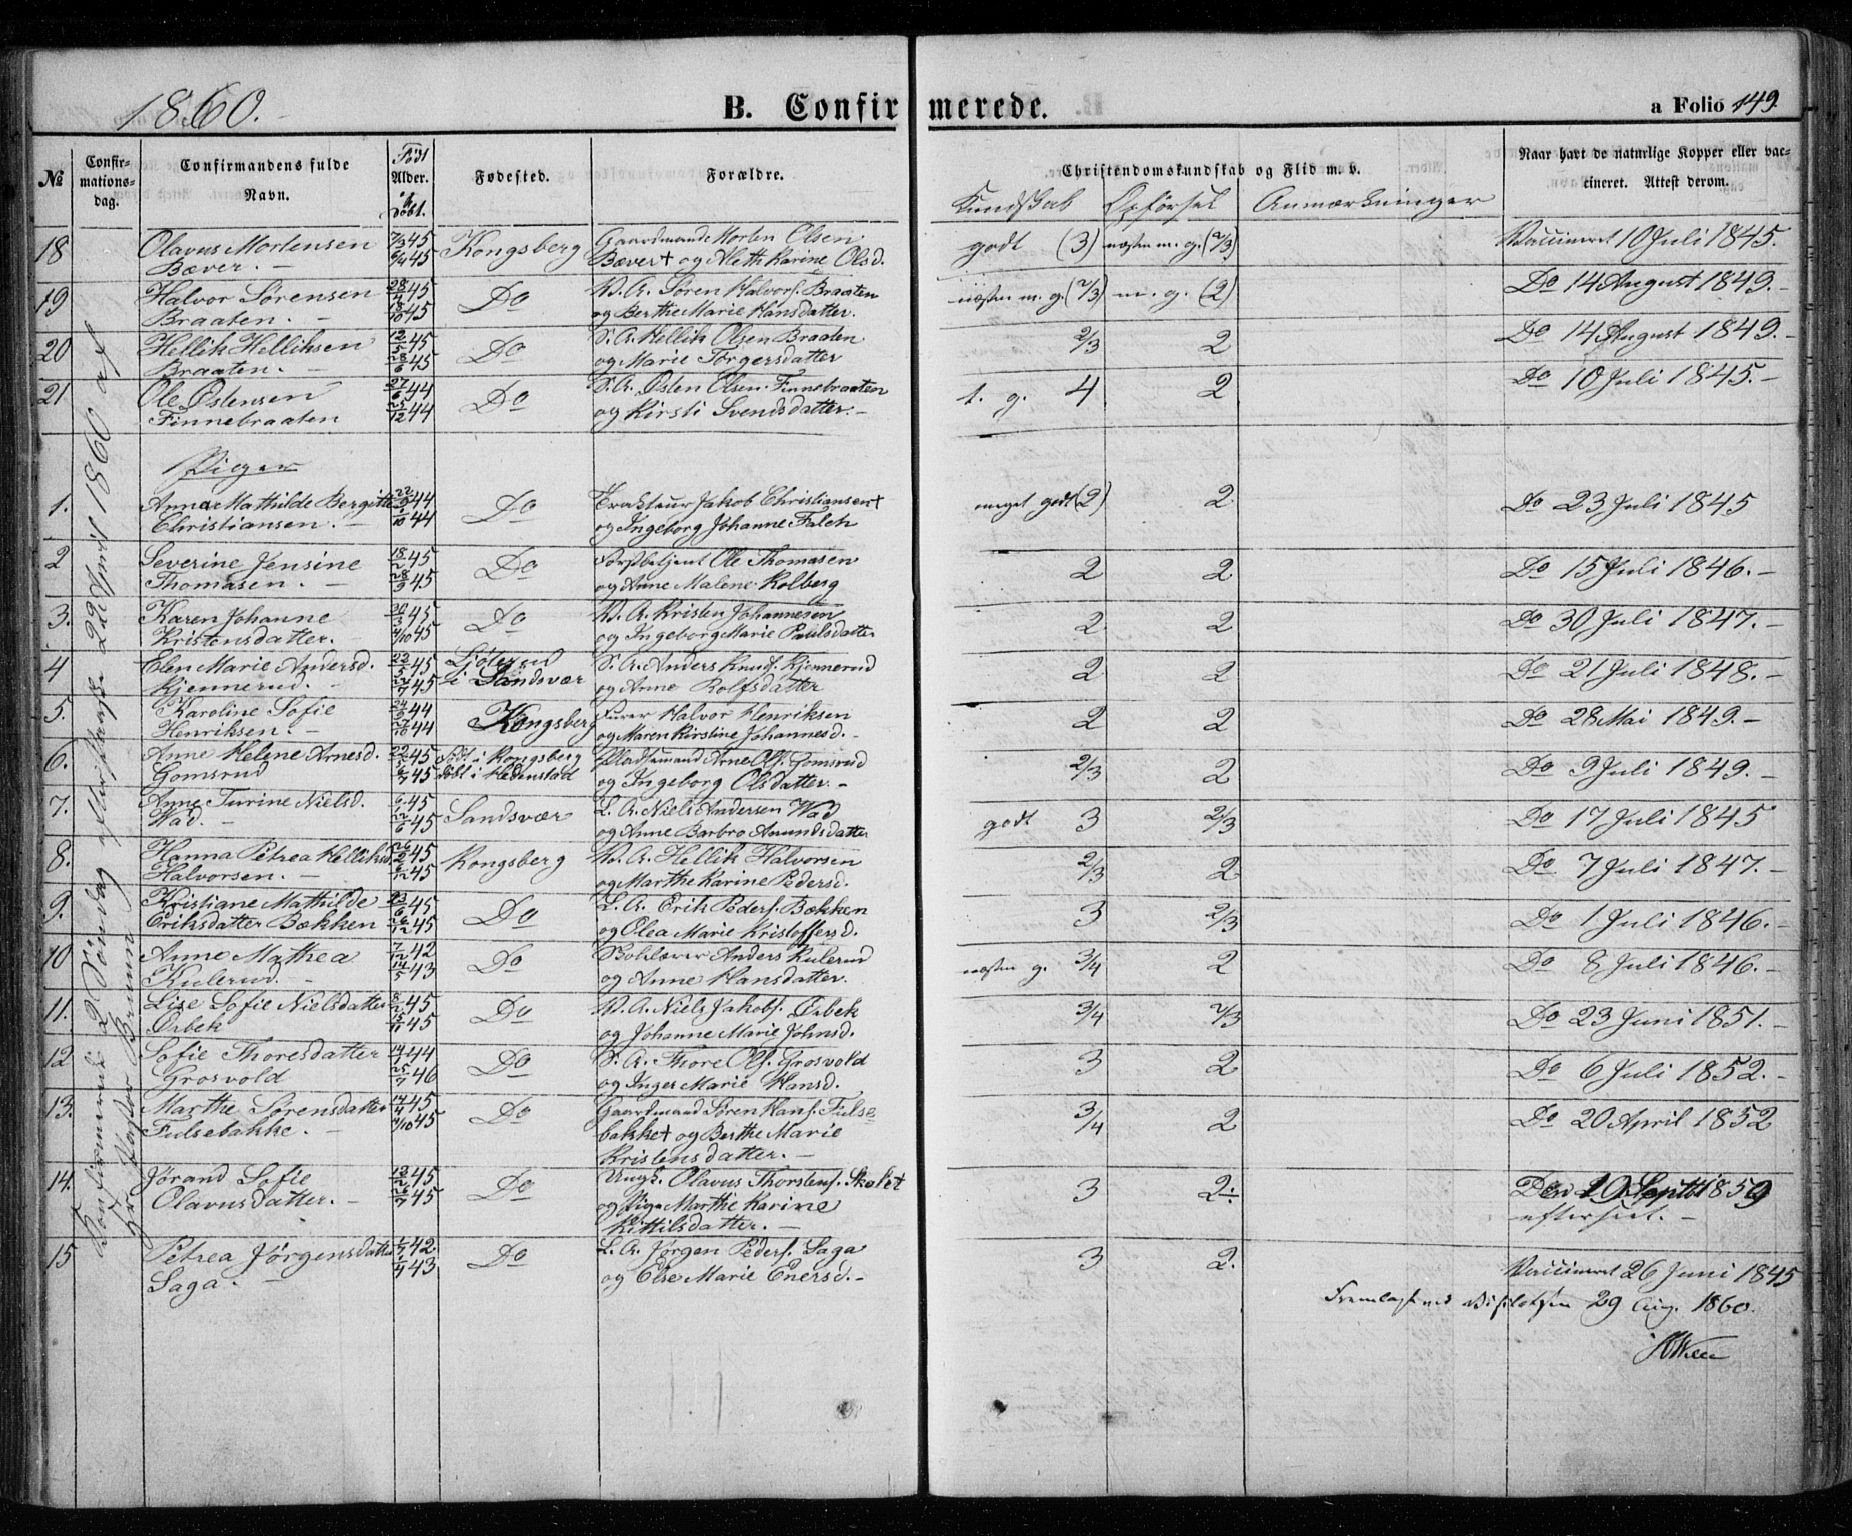 1860.
B. Confirmerede.
a Folio 149.
№
Confirmationsdag.
Confirmandens fulde Navn.
Født Alder. og døbt.
Fødested.
Forældre.
Christendomskundskab og Flid m. v.
Kundskab Opførsel Anmærkninger
Naar havt de naturlige Kopper eller vaccineret. Attest derom.
Konfirmerede 2 Søndag efter Paaske 22 April 1860 af
Hr. Pastor Bruun
18 Olavus Mortensen 7/3 45 Kongsberg Gaardmand Morten Olsen godt (3) næsten m. g. (2/3) Vaccineret 10 Juli 1845.
Bæver. — 6/4 45 Bæver † og Aleth Karine Olsd.
19 Halvor Sørensen 28/7 45 Do B. A. Søren Halvors. Braaten næsten m. g. (2/3) m. g. (2) Do 14 August 1849. —
Braaten. — 18/10 45 og Berthe Marie Hansdatter.
20 Hellik Helliksen 12/5 45 Do S. A. Hellik Olsen Braaten 2/3 2 Do 14 August 1849. —
Braaten. — 28/6 45 og Marie Torgersdatter
21 Ole Østensen 27/6 44 Do S. A. Østen Olsen Finnebraaten t. g. 4 2 Do 10 Juli 1845. —
Finnebraaten 25/12 44 og Kirsti Svendsdatter. —
Piger
1. Anna Mathilde Bergitte 22/9 44 Do Trakteur Jakob Christiansen † meget godt (2) 2 Do 23 Juli 1845
Christiansen. — 10 44 og Ingeborg Johanne Falch
2 Severine Jensine 18/2 45 Do Forstbetjent Ole Thomasen 2 2 Do 15 Juli 1846. —
Thomasen. — 28/3 45 og Anne Malene Kolberg
3. Karen Johanne 20/3 45 Do B. A. Kristen Johannesen 2 2 Do 30 Juli 1847. —
Kristensdatter. — /10 45 og Ingeborg Marie Paulsdatter
4 Elen Marie Andersd. 22/5 45 Ljøterud S. A. Anders Knuds. Kjennerud 2 2 Do 21 Juli 1848. —
Kjennerud. — /7 45 i Sandsvær og Anne Rolfsdatter
5. Karoline Sofie 24/9 44 Kongsberg Furer Halvor Henriksen 2 2 Do 28 Mai 1849. —
Henriksen. — 27/10 44 og Maren Kirstine Johannesd. —
6. Anne Helene Arnesd. 22/5 45 Født i Kongsberg Pladsemand Arne Ols. Gomsrud 2/3 2 Do 9 Juli 1849. —
Gomsrud /7 45 døbt i Hedenstad og Ingeborg Olsdatter. —
7. Anne Turine Nielsd. 6/1 45 Sandsvær L. A. Niels Andersen Wad godt 3 2/3 Do 17 Juli 1845
Wad. — /6 45 og Anne Barbro Amundsdatter
8. Hanna Petrea Helliksd. 45 Kongsberg B. A. Hellik Halvorsen 2/3 2 Do 7 Juli 1847. —
Halvorsen. — /12 45 og Marthe Karine Pedersd.
9. Kristiane Mathilde 23/6 45 Do L. A. Erik Peders. Bækken 3 2/3 Do 1 Juli 1846. —
Eriksdatter Bækken 26/12 45 og Olea Marie Kristoffersd.
10 Anne Mathea 7/12 42 Do Boklærer Anders Kulerud næsten g. 3/4 2 Do 8 Juli 1846. —
Kulerud. — 14/5 43 og Anne Hansdatter.
11. Lise Sofie Nielsdatter 8/2 45 Do B. A. Niels Jakobs. Ørbek 3/4 2/3 Do 23 Juni 1851. —
Ørbek 45 og Johanne Marie Johnsd.
12 Sofie Thoresdatter 14/ 44 Do S. A. Thore Ols. Grosvold 3 2 Do 6 Juli 1852. —
Grosvold 25/7 46 og Inger Marie Hansd.
13. Marthe Sørensdatter 14/4 45 Do Gaardmand Søren Hans. Fulse 3/4 2 Do 20 April 1852
Fulsebakke. — /10 45 bakke † og Berthe Marie
Kristensdatter. —
14. Jørand Sofie 13/2 45 Do Ungk. Olavus Thorstens. Skolet 3 2÷ Den 10 Septbr 1859
Olavusdatter. — /7 45 og Pige Marthe Karine efterseet. —
Kittilsdatter. —
15 Petrea Jørgensdatter 42 Do L. A. Jørgen Peders. Saga 3 2. Vaccineret 26 Juni 1845
Saga. — 43 og Else Marie Enersd. —
Fremlagt ved Visitatsen 29 Aug. 1860.